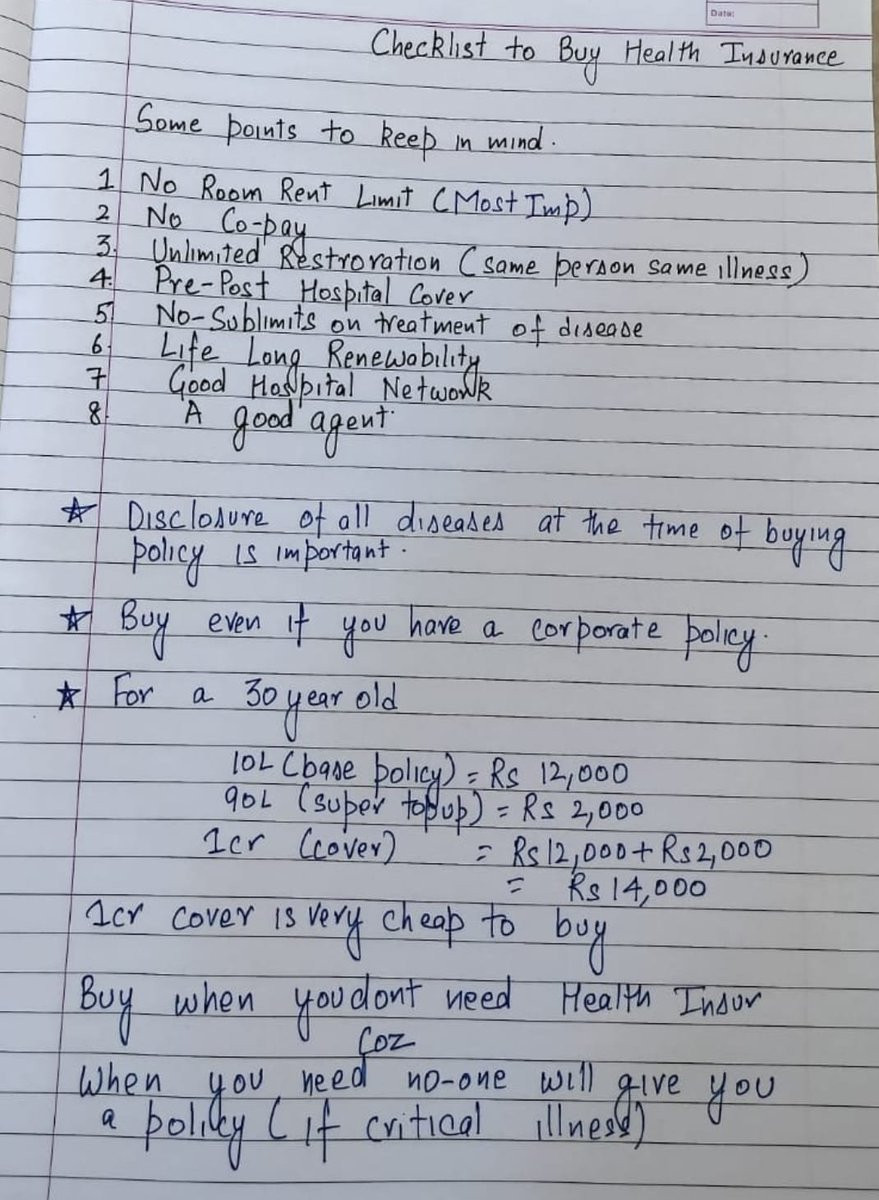 Date:
Checklist to Buy Health Insurance
Some points to keep in mind.
1 No Room Rent Limit (Most Imp)
2 No Co-pay
3. Unlimited Restroration (same person same illness)
4. Pre-Post Hospital Cover
5 No-Sublimits on treatment of disease
6 Life Long Renewability
7 Good Hospital Network
8 A good agent.
☆ Disclosure of all diseases at the time of buying
policy is important.
☆ Buy even if you have a corporate policy.
☆ For a 30 year old
10L (base policy) = Rs 12,000
90L (super topup) = Rs 2,000
1cr (cover) = Rs 12,000 + Rs 2,000
= Rs 14,000
1cr cover is very cheap to buy
Buy when you dont need Health Insur
Coz
When you need no-one will give you
a policy (if critical illness)